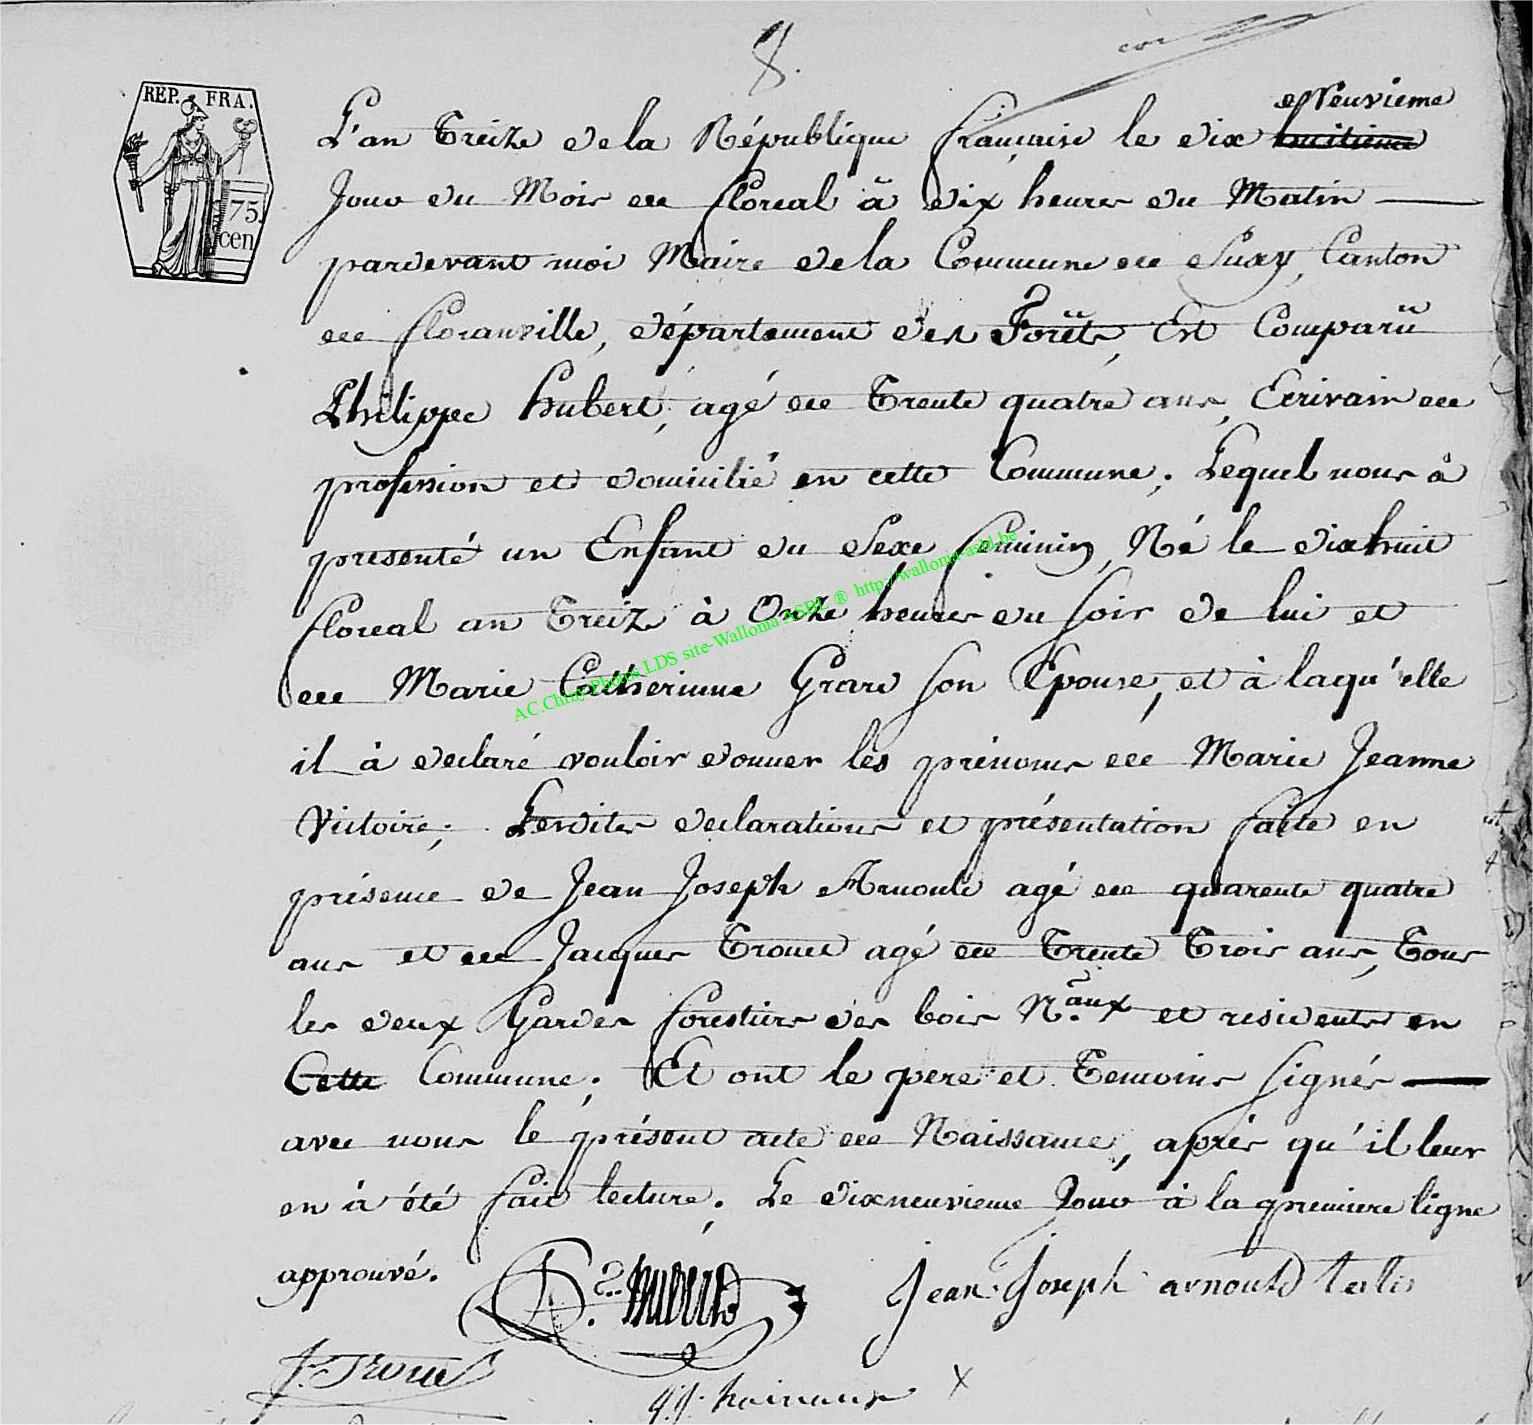 8.
REP. FRA.
75.
cen
Neuvieme
L'an Treize de la République française le dix huitieme
Jour du Mois de floreal à dix heures du Matin
pardevant moi Maire de la Commune de Suxy, Canton
de floranville, département des Forêts, Est Comparû
Philippe hubert, agé de Trente quatre ans, Ecrivain de
profession et domicilié en cette Commune. Lequel nous à
presenté un Enfant du Sexe feminin, Né le dixhuit
floreal an Treize à Onze heures du soir de lui et
de Marie Catherinne Grard son Epouse, et à laqu'elle
il à declaré vouloir donner lés prénoms de Marie Jeanne
Victoire; Lesdites declarations et présentation faite en
présence de Jean Joseph Arnould agé de quarente quatre
ans et de Jacques Trouet agé de Trente Trois ans, Tous
les deux Gardes forestiers des bois N.aux et residents en
Cette Commune. Et ont le pere et Temoins signés
avec nous lé présent acte de Naissance, aprés qu'il leur
en à été fait lecture. Le dixneuvieme Jour à la premiere ligne
approuvé.
hubert
Jean Joseph arnould
J. Trouet
AC.Chiny Photos LDS site-Wallonia ASBL ® http://wallonia-asbl.be